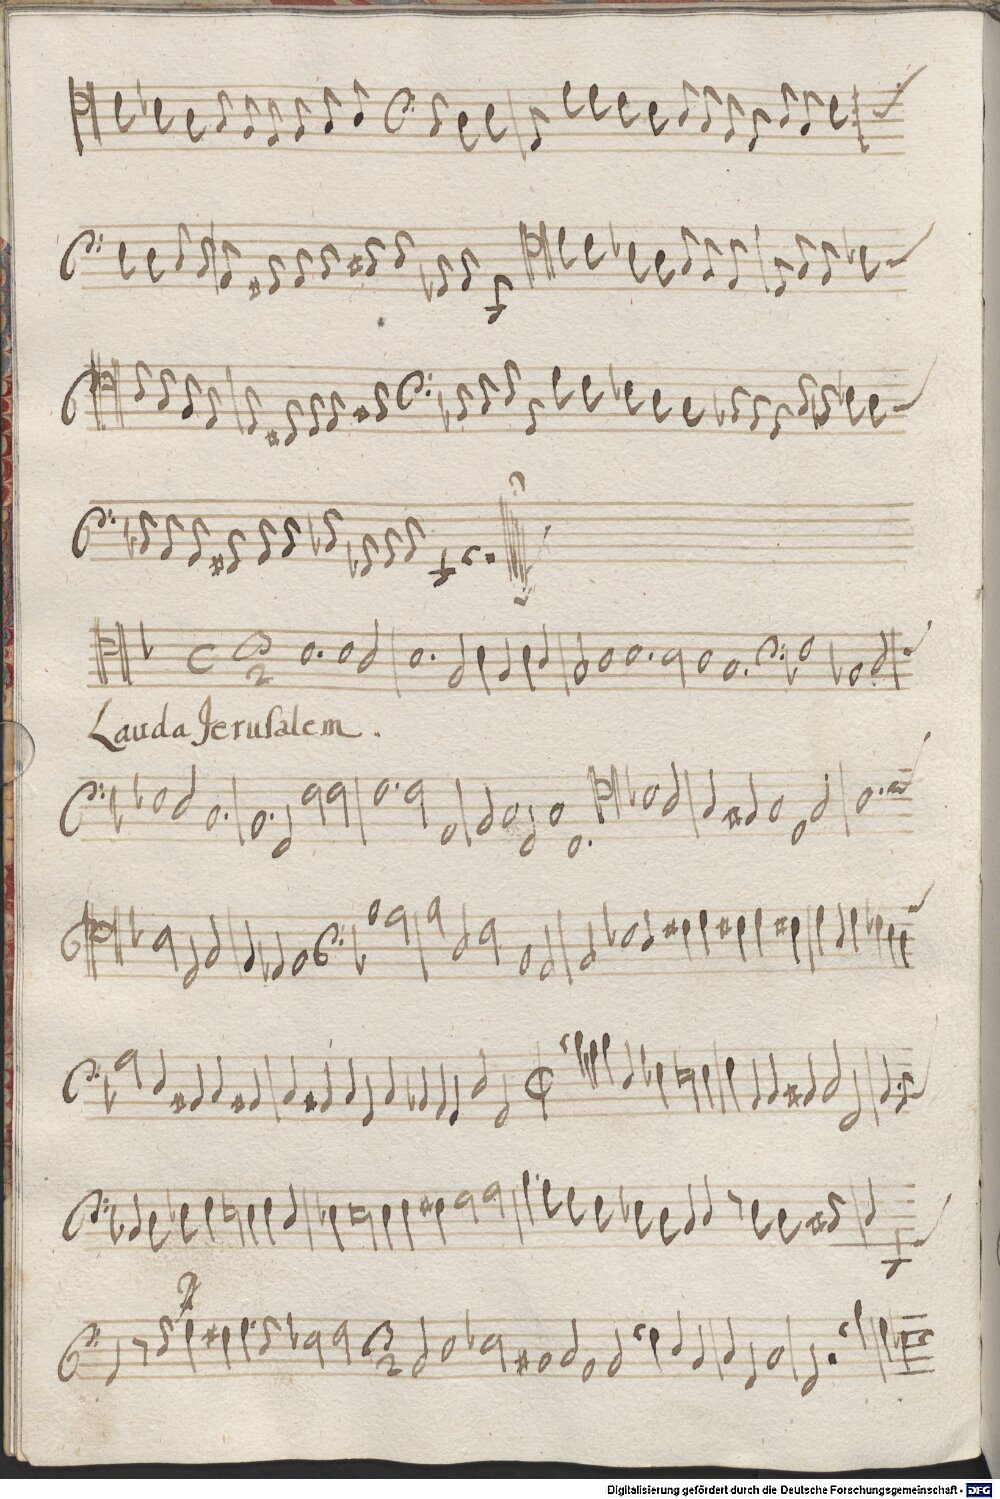 Lauda Jerusalem.
Digitalisierung gefördert durch die Deutsche Forschungsgemeinschaft - DFG